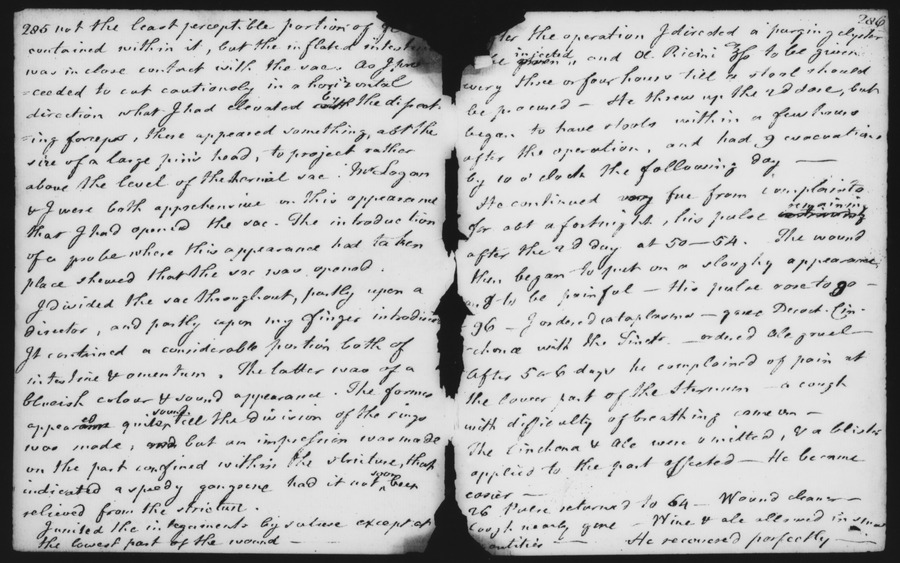 285 not the least perceptible portion of
contained within it, but the inflated intestine
was in close contact with the sac. As I pro
-ceeded to cut cautiously in a horizontal
direction what I had elevated with the dissect
-ing forceps, there appeared something, abt the
size of a large pin's head, to project rather
above the level of the hernial sac. Mr Logan
& I were both apprehensive on this appearance
that I had opened the sac. The introduction
of a probe where this appearance had taken
place shewed that the sac was opened.
I divided the sac throughout, partly upon a
director, and partly upon my finger introduced
It contained a considerable portion both of
intestine & omentum. The latter was of a
blueish colour & sound appearance. The former
appeared quite sound till the division of the rings
was made, and but an impression was made
on the part confined within the stricture, that
indicated a speedy gangrene had it not soon been
relieved from the stricture.
I united the integuments by suture except at
the lowest part of the wound —
286
the operation I directed a purging clyster
injected given, and Ol. Ricini ℥ß to be given
every three or four hours till a stool should
be procured — He threw up the 2d dose, but
began to have stools within a few hours
after the operation, and had 9 evacuations
by 10 o'clock the following day —
He continued very free from complaints
for abt a fortnight, his pulse remaining
after the 2d day at 50—54. The wound
then began to put on a sloughy appearance
and to be painful — His pulse rose to 90 —
96 — I ordered cataplasms — gave Decoct. Cin-
chonæ with the Tinctr. — ordered ale gruel —
After 5 or 6 days he complained of pain at
the lower part of the Sternum — a cough
with difficulty of breathing came on —
The Cinchona & Ale were omitted, & a blister
applied to the part affected — He became
easier —
26 Pulse returned to 64 — Wound cleaner —
Cough nearly gone — Wine & ale allowed in small
quantities — He recovered perfectly —